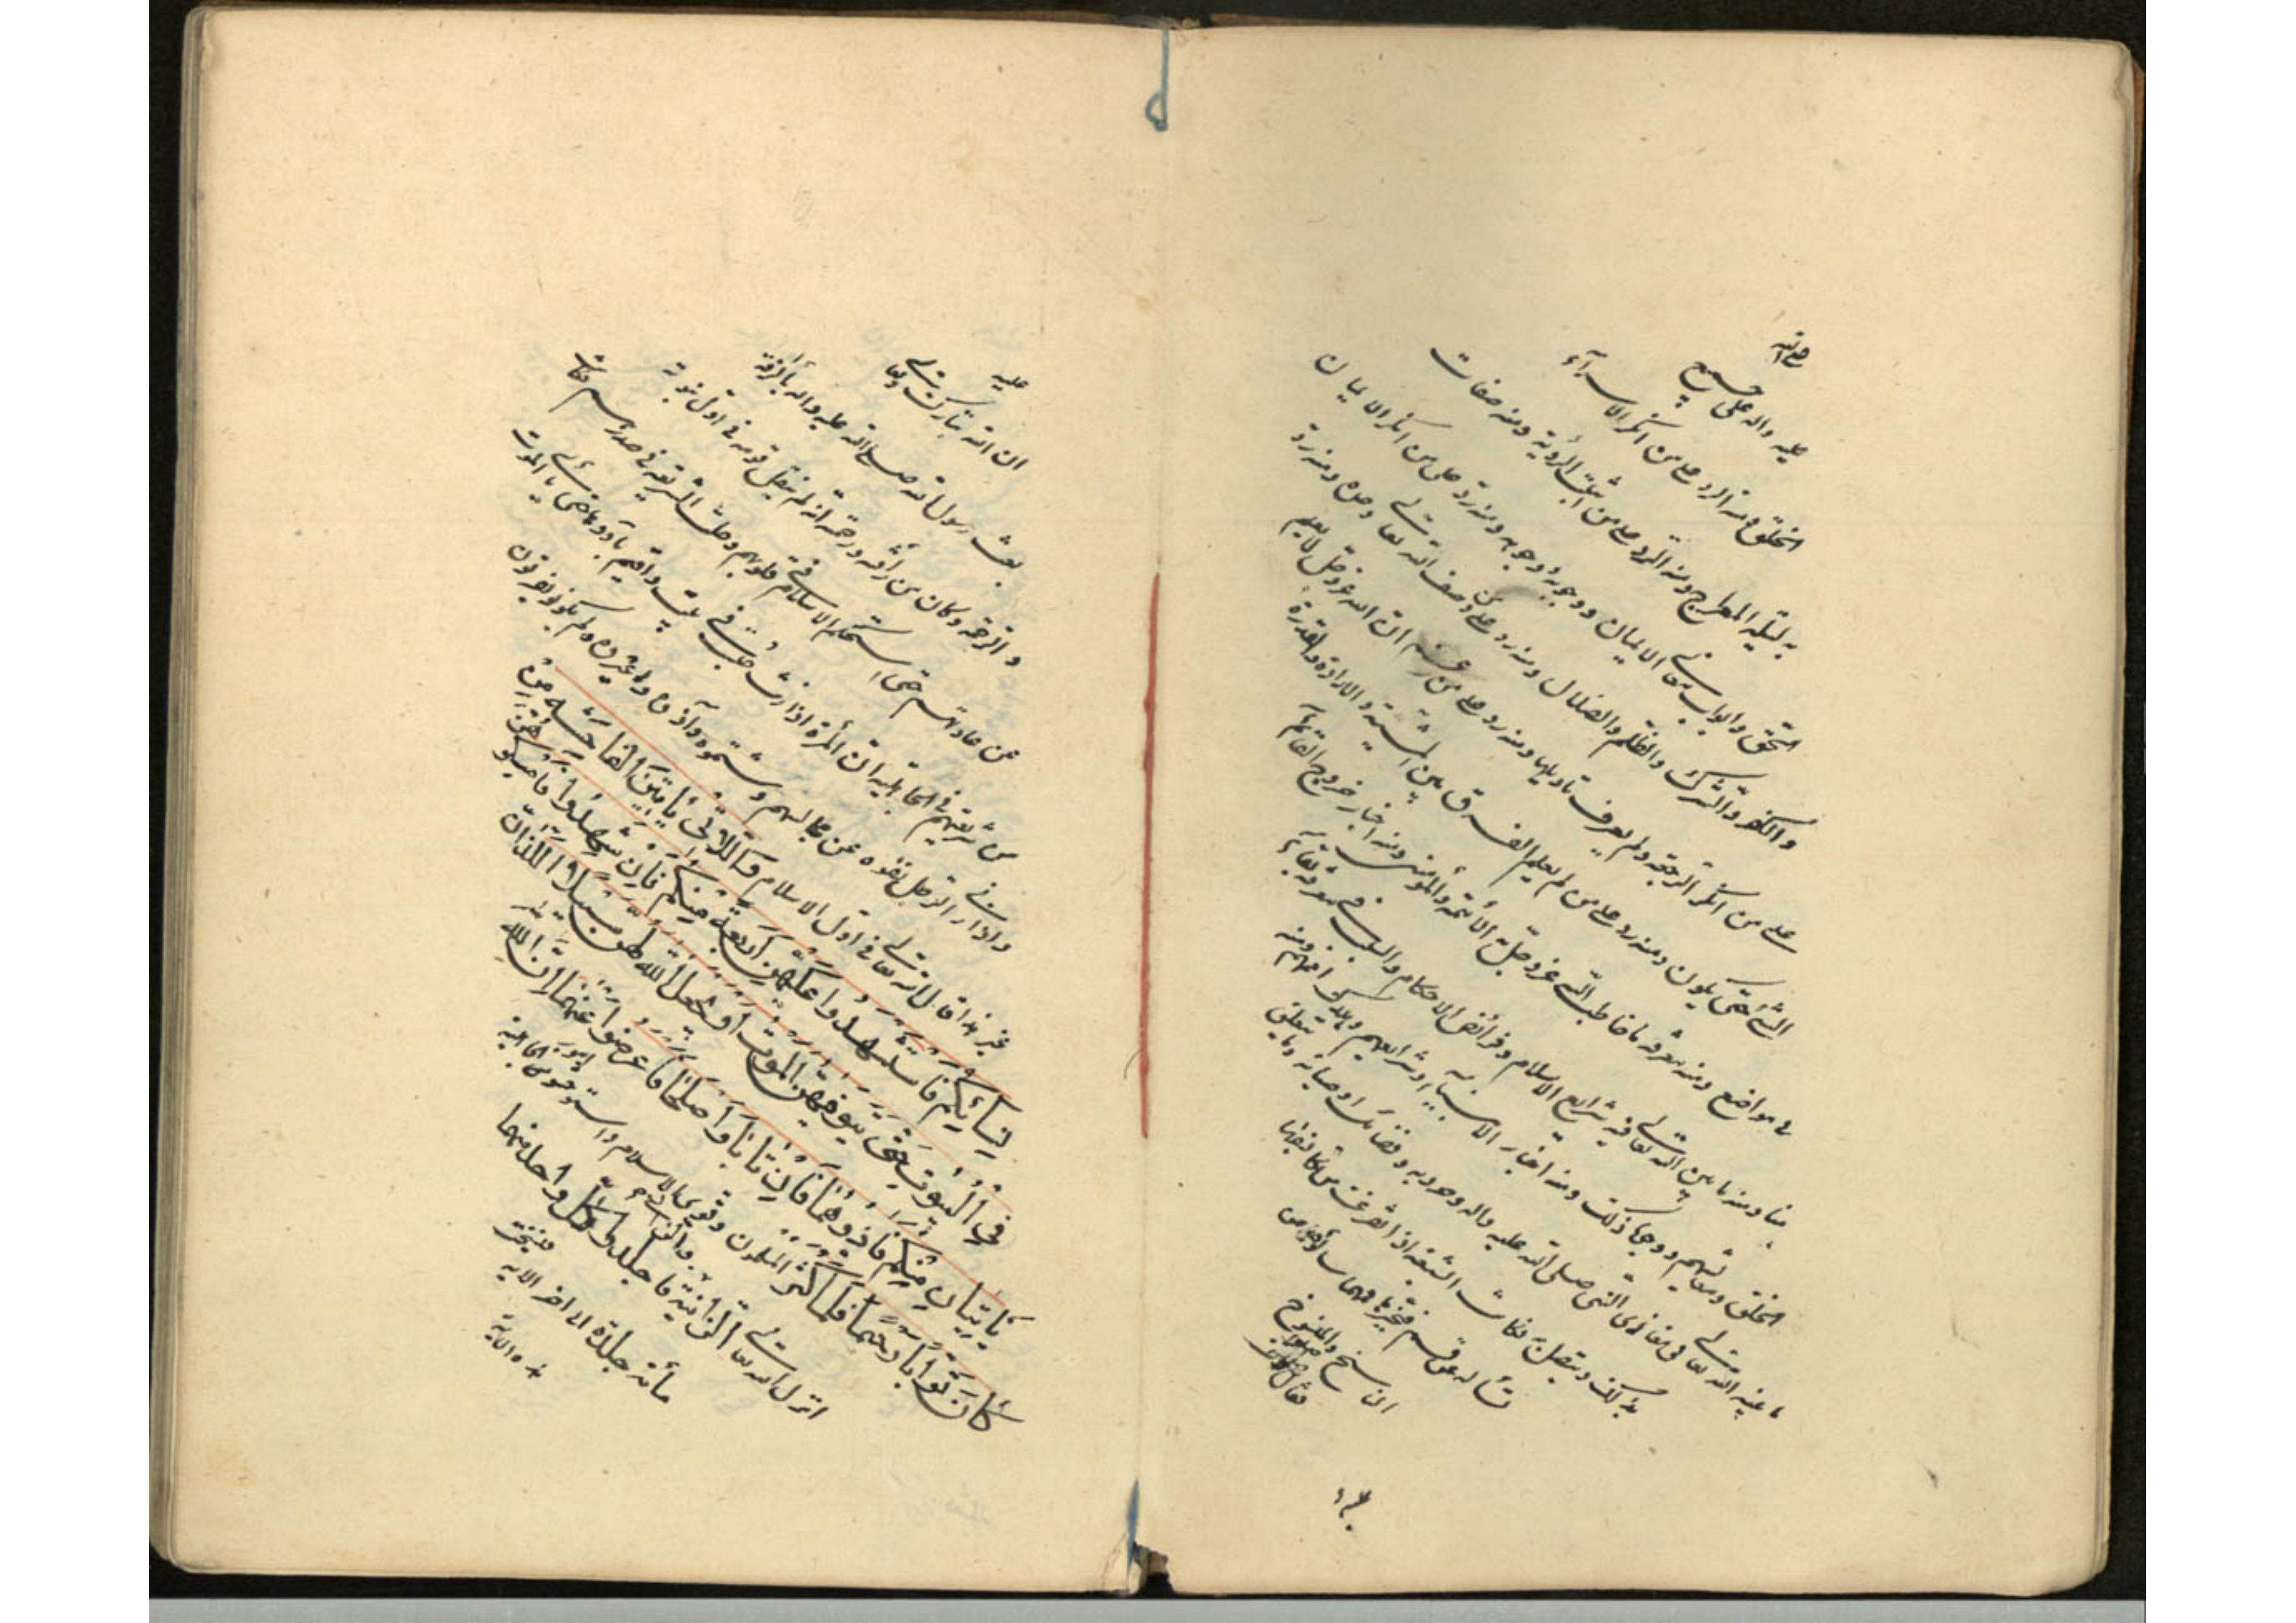 صلى الله
عليه واله على جميع
الخلق ومنه الرد على من انكر الاسرآء
به ليلة المعراج ومنه الرد على من اثبت الرؤية ومنه صفات
الحق وابواب معاني الايمان ووجوبه ووجوهه ومنه رد على من انكر الايمان
والكفر والشرك والظلم والضلال ومنه رد على من وصف الله تعالى وحده ومنه رد
على من انكر الرجعة ولم يعرف تاويلها ومنه رد على من زعم ان الله عز وجل لا يعلم
الشئ حتى يكون ومنه رد على من لم يعلم الفرق بين المشية والارادة والقدرة
في مواضع ومنه معرفة ما خاطب الله عز وجل به الأئمة والمؤمنين ومنه اخبار خروج القائم
منا ومنه ما بين الله تعالى فيه شرايع الاسلام وفرائض الاحكام والسبب في معرفة بقاء
الخلق ومعايشهم ووجوه ذلك ومنه اخبار الانبيآء وشرايعهم وهلاك اممهم ومنه
ما بينه الله تعالى في مغازي النبي صلى الله عليه واله وحروبه وفضائل اوصيائه وما يتعلق
بذلك ويتصل به فكانت الشيعة اذا تفرغت من تكاليفها
تسأله عن قسم فيخبرها فمما سألوه عن
الناسخ والمنسوخ
فقال صلوات
عليه
ان الله تبارك وتعالى
بعث رسول الله صلى الله عليه واله بالرأفة
والرحمة وكان من رأفته ورحمته انه لم ينقل قومه في اول نبوته
عن عادتهم حتى استحكم الاسلام في قلوبهم وحلت الشريعة في صدورهم فكانت
من شريعتهم في الجاهلية ان المرأة اذا زنت حبست في بيت واقيم بأودها حتى يأتي الموت
واذا زنى الرجل نفوه عن مجالسهم وشتموه وآذوه وعيروه ولم يكونوا يعرفون
غير هذا قال الله تعالى في اول الاسلام وَاللَّاتِي يَأْتِينَ الْفَاحِشَةَ مِنْ
نِسَائِكُمْ فَاسْتَشْهِدُوا عَلَيْهِنَّ أَرْبَعَةً مِنْكُمْ فَإِنْ شَهِدُوا فَأَمْسِكُوهُنَّ
فِي الْبُيُوتِ حَتَّى يَتَوَفَّيهُنَّ الْمَوْتُ أَوْ يَجْعَلَ اللَّهُ لَهُنَّ سَبِيلًا وَاللَّذَانِ
يَأْتِيَانِهَا مِنْكُمْ فَآذُوهُمَا فَإِنْ تَابَا وَأَصْلَحَا فَأَعْرِضُوا عَنْهُمَا إِنَّ اللَّهَ
كَانَ تَوَّابًا رَحِيمًا فلما كثر المسلمون وقوي الاسلام واستوحشوا امور الجاهلية
انزل الله تعالى الزَّانِيَةُ وَالزَّانِي فَاجْلِدُوا كُلَّ وَاحِدٍ مِنْهُمَا
مائة جلدة الى اخر الاية فنسخت
هذه الاية